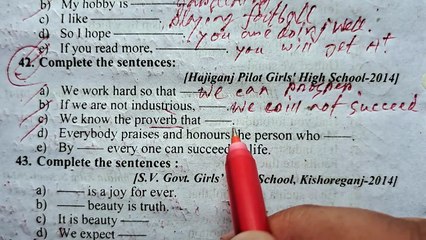 b) My hobby is gardening.
c) I like playing football
d) So I hope you are doing well.
e) If you read more, you will get A+
42. Complete the sentences:
[Hajiganj Pilot Girls' High School-2014]
a) We work hard so that we can prosper.
b) If we are not industrious, we will not succeed
c) We know the proverb that
d) Everybody praises and honours the person who
e) By every one can succeed life.
43. Complete the sentences :
[S.V. Govt. Girls' School, Kishoreganj-2014]
a) is a joy for ever.
b) beauty is truth.
c) It is beauty
d) We expect